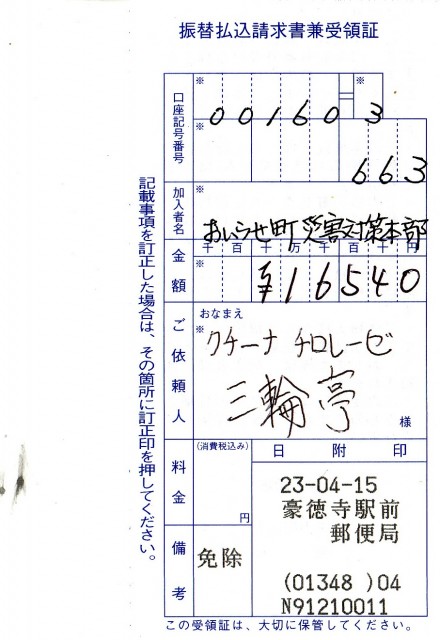 振替払込請求書兼受領証
口座記号番号
※
00160=3
※
663
加入者名
※
おいらせ町災害対策本部
金額
千百十万千百十円
※
¥16540
ご依頼人
おなまえ
※
クチーナ チロレーゼ
三輪亭
様
料金
(消費税込み)
円
日附印
23-04-15
豪徳寺駅前
郵便局
(01348 )04
N91210011
備考
免除
この受領証は、大切に保管してください。
記載事項を訂正した場合は、その箇所に訂正印を押してください。